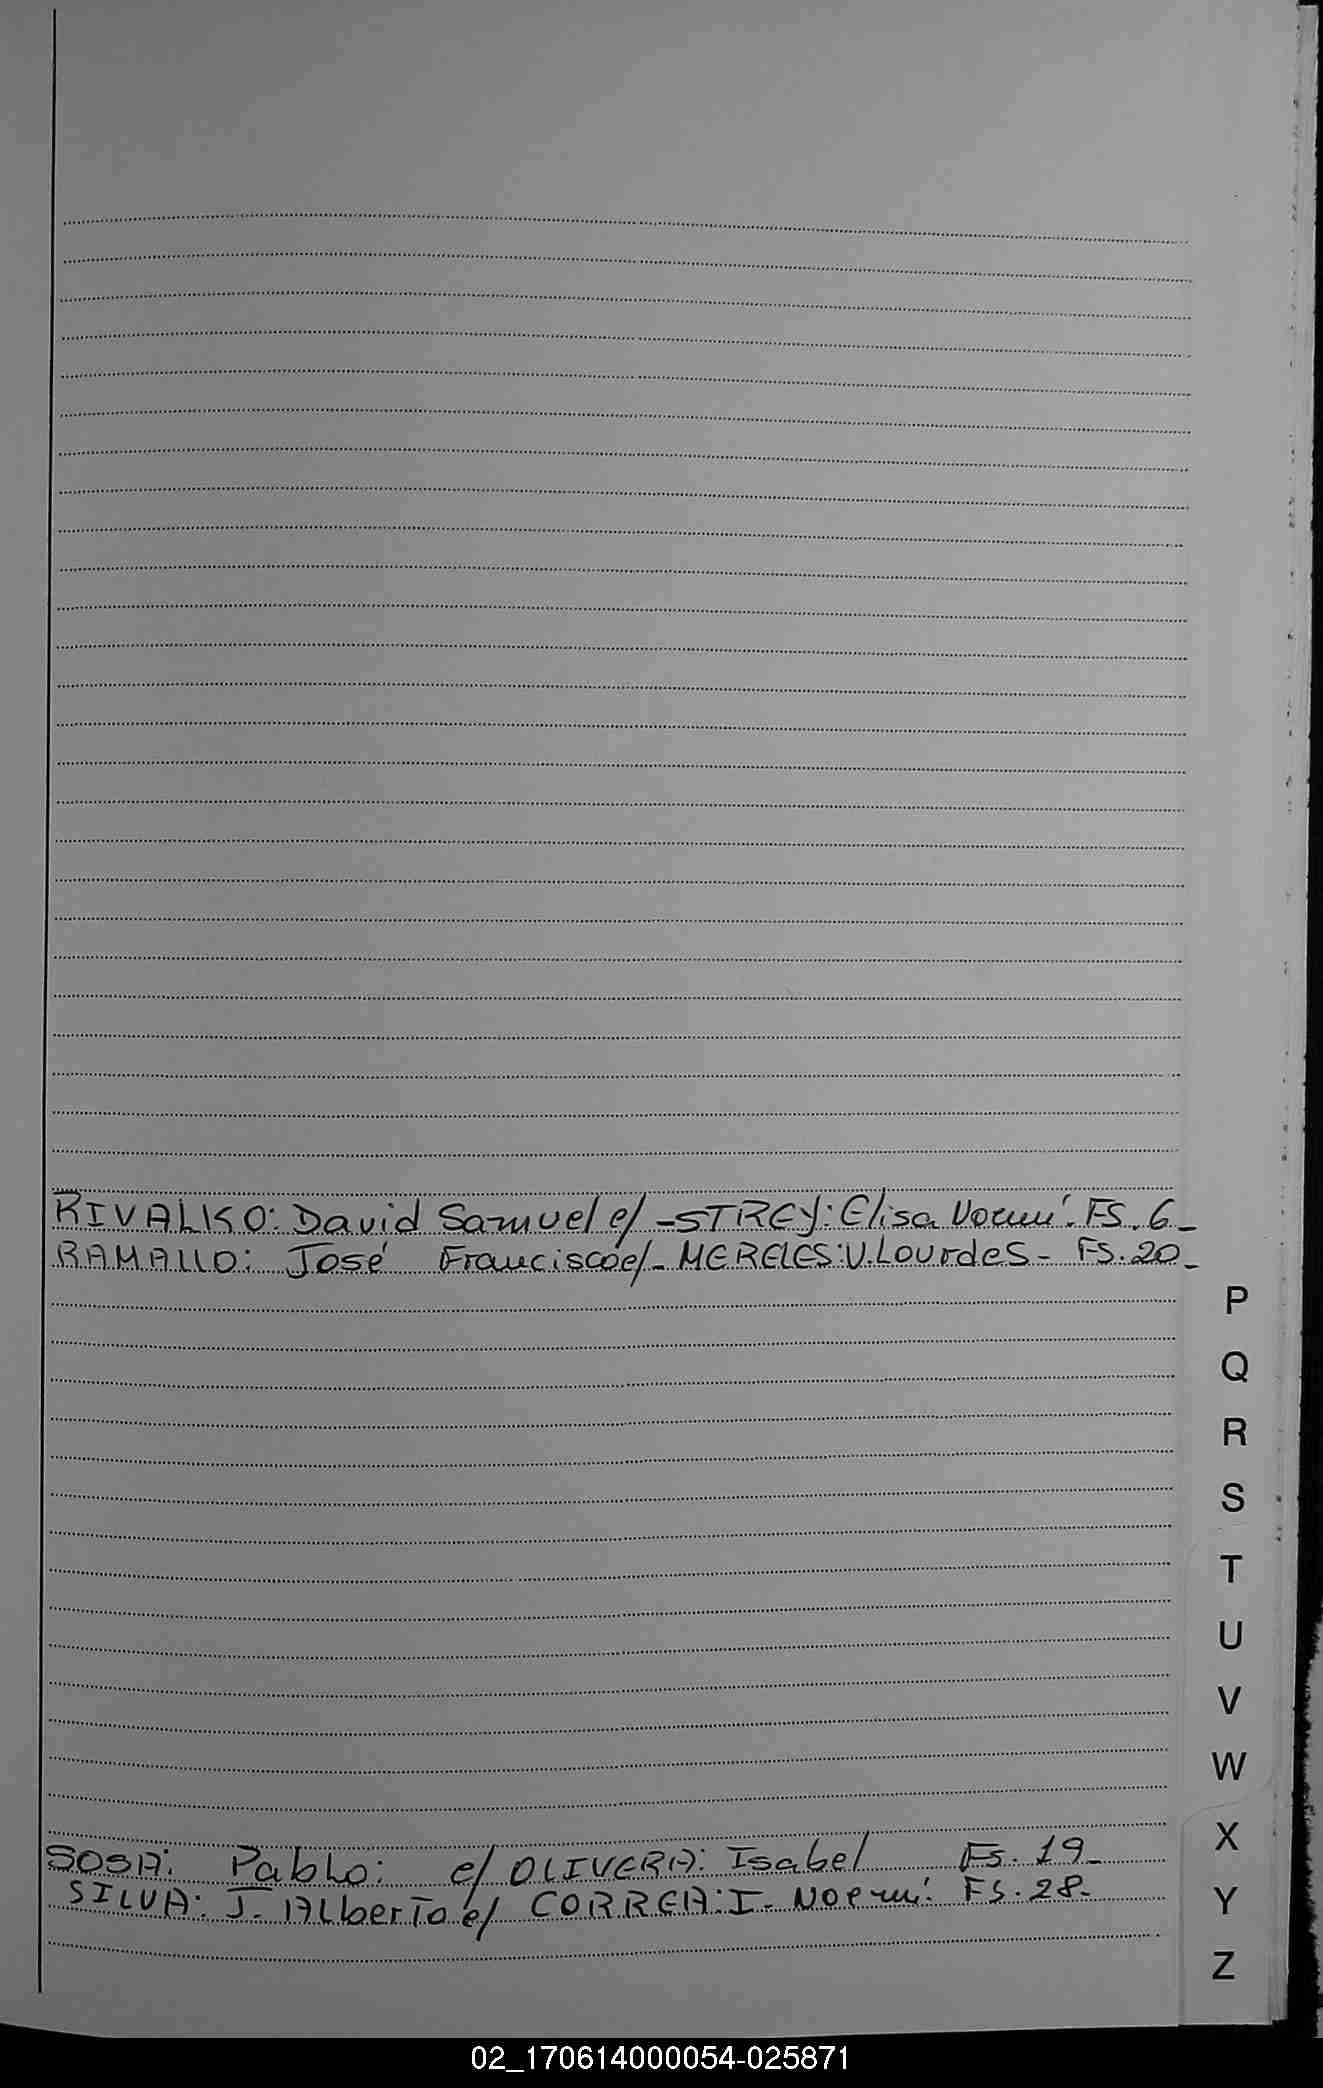 RIVALKO: David Samuel c/ - STREY: Elisa Noemí. FS. 6_
RAMALLO: José Francisco c/ - MERELES: V. Lourdes - FS. 20_
P
Q
R
S
T
U
V
W
SOSA: Pablo: c/ OLIVERA: Isabel Fs. 19_
X
SILVA: J. Alberto c/ CORREA: I. Noemí. FS. 28-
Y
Z
02_170614000054-025871